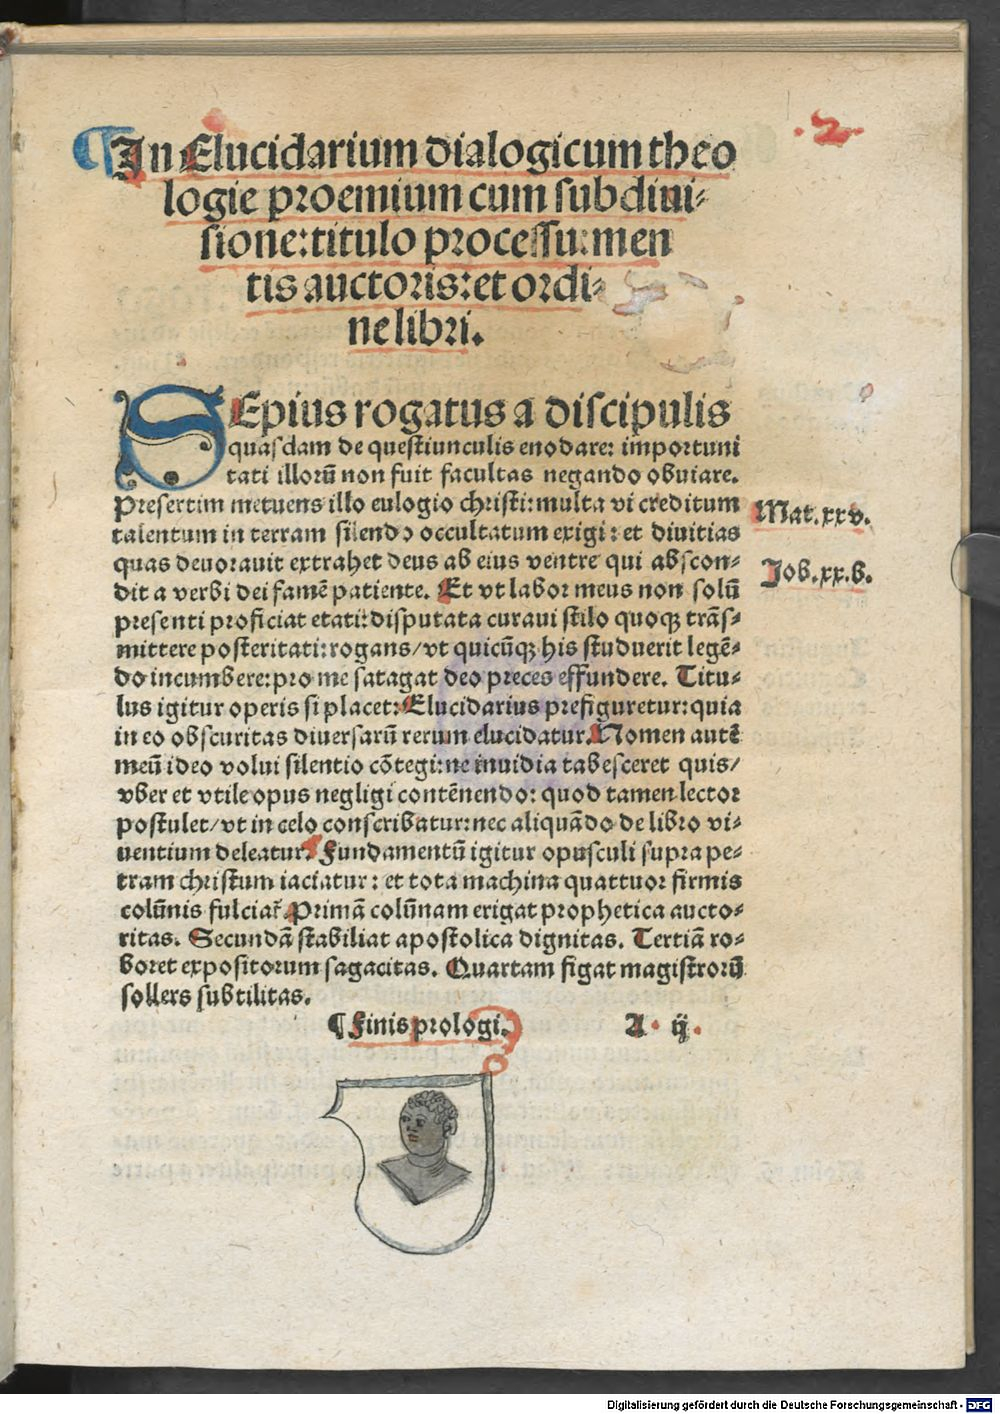 .2.
¶In Elucidarium dialogicum theo
logie proemium cum subdiui⸗
sione: titulo processu: men
tis auctoris: et ordi⸗
ne libri.
SEpius rogatus a discipulis
quasdam de questiunculis enodare: importuni
tati illorū non fuit facultas negando obuiare.
Presertim metuens illo eulogio christi: multa vi creditum
talentum in terram silendo occultatum exigi: et diuitias
quas deuorauit extrahet deus ab eius ventre qui abscon⸗
dit a verbi dei famē patiente. Et vt labor meus non solū
presenti proficiat etati: disputata curaui stilo quoqꝫ trās⸗
mittere posteritati: rogans/ vt quicūqꝫ his studuerit legē⸗
do incumbere: pro me satagat deo preces effundere. Titu⸗
lus igitur operis si placet: Elucidarius prefiguretur: quia
in eo obscuritas diuersarū rerum elucidatur. Nomen autē
meū ideo volui silentio cōtegi: ne inuidia tabesceret quis/
vber et vtile opus negligi contēnendo: quod tamen lector
postulet/ vt in celo conscribatur: nec aliquādo de libro vi⸗
uentium deleatur. Fundamentū igitur opusculi supra pe⸗
tram christum iaciatur: et tota machina quattuor firmis
colūnis fulciaꝷ. Primā colūnam erigat prophetica aucto⸗
ritas. Secundā stabiliat apostolica dignitas. Tertiā ro⸗
boret expositorum sagacitas. Quartam figat magistrorū
sollers subtilitas.
¶Finis prologi. A ij
Mat.xxv.
Job.xx.b.
Digitalisierung gefördert durch die Deutsche Forschungsgemeinschaft - DFG